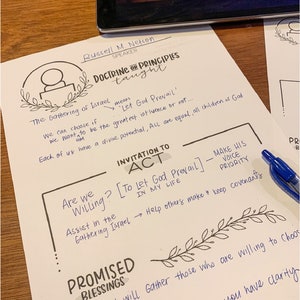 Russell M Nelson
SPEAKER
DOCTRINE OR PRINCIPLES
taught
The Gathering of Israel means "Let God Prevail"
We can choose if
we want to be the greatest influence or not...
Each of us have a divine potential, ALL are equal, all children of God
INVITATION TO
ACT
Are we
Willing? [To Let God Prevail]
IN MY LIFE
MAKE HIS
VOICE
PRIORITY
Assist in the
Gathering Israel → Help others make & keep covenants
PROMISED
BLESSINGS
will gather those who are willing to choose
you have clarity